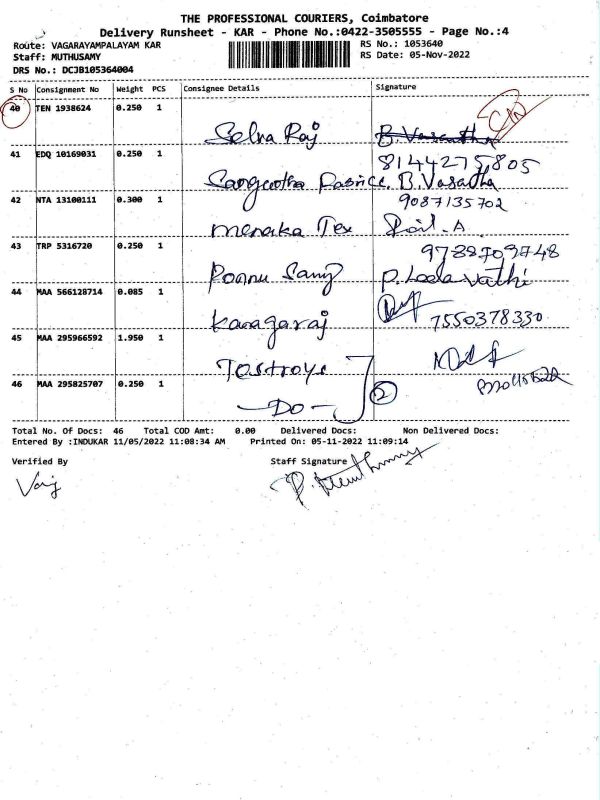 THE PROFESSIONAL COURIERS, Coimbatore
Delivery Runsheet - KAR - Phone No.:0422-3505555 - Page No.:4
Route: VAGARAYAMPALAYAM KAR RS No.: 1053640
Staff: MUTHUSAMY RS Date: 05-Nov-2022
DRS No.: DCJB105364004
S No Consignment No Weight PCS Consignee Details Signature
40 TEN 1938624 0.250 1
Selva Raj B. Vasantha
8144275805
41 EDQ 10169031 0.250 1
Sangeetha Fabrice B. Vasantha
42 NTA 13100111 0.300 1 9087135702
menaka Tex
43 TRP 5316720 0.250 1 9788709748
Ponnu Samy P. Leelavathi
44 MAA 566128714 0.085 1
Kanagaraj 7550378330
45 MAA 295966592 1.950 1
46 MAA 295825707 0.250 1 2
- DO -
Total No. Of Docs: 46 Total COD Amt: 0.00 Delivered Docs: Non Delivered Docs:
Entered By :INDUKAR 11/05/2022 11:08:34 AM Printed On: 05-11-2022 11:09:14
Verified By Staff Signature